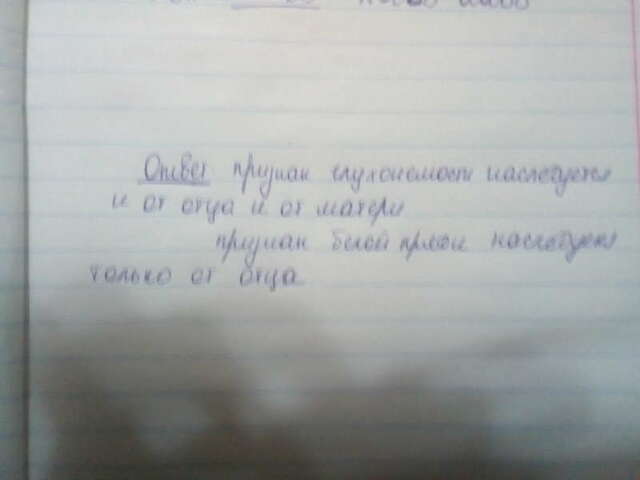 Ответ признак глухонемости наследуется
и от отца и от матери
признак белой пряди наследуется
только от отца